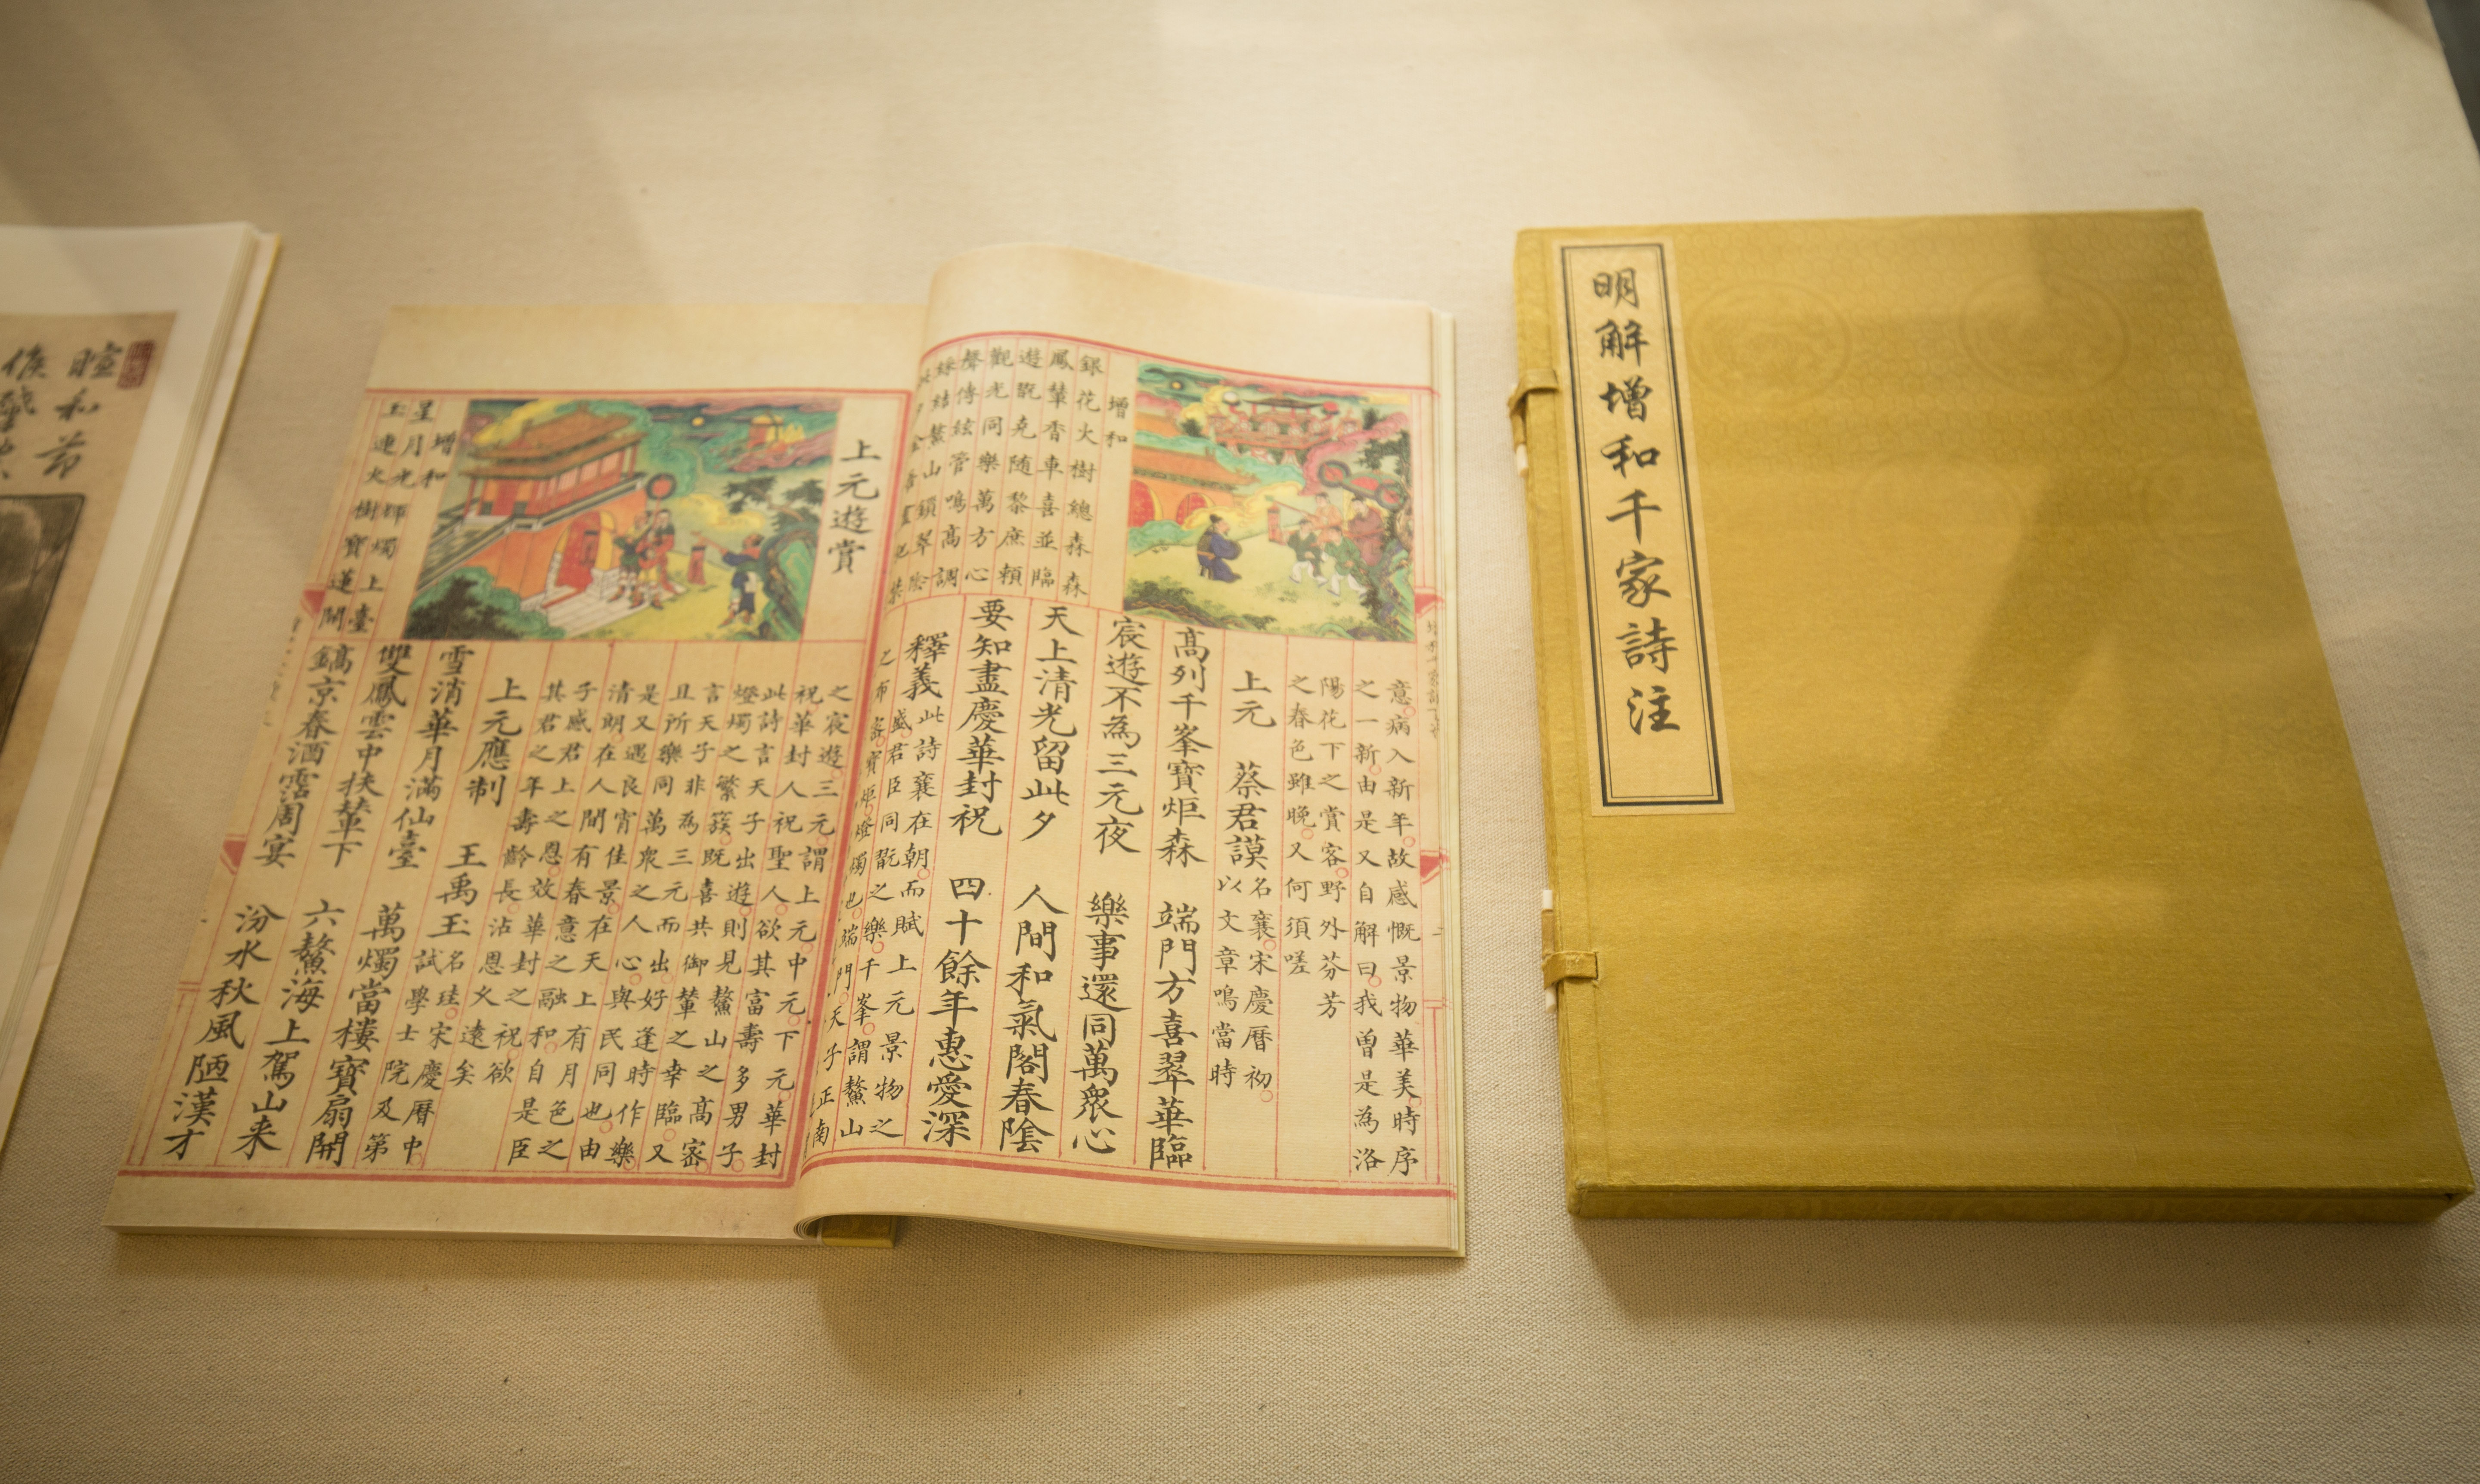 明解增和千家詩注
增和
銀花火樹總森森
鳳輦香車喜並臨
遊翫堯随黎庶頼
觀光同樂萬方心
聲傳絃管鳴髙調
綵結鰲山鎖翠陰
意病入新年故感慨景物華美時序
之一新由是又自解曰我曽是為洛
陽花下之賞客野外芬芳
之春色雖晚又何須嗟
上元 蔡君謨 名襄宋慶曆初
以文章鳴當時
髙列千峯寶炬森 端門方喜翠華臨
宸遊不為三元夜 樂事還同萬衆心
天上清光留此夕 人間和氣閣春陰
要知盡慶華封祝 四十餘年惠愛深
釋義 此詩襄在朝而賦上元景物之
盛君臣同翫之樂千峯謂鰲山
之布密寶炬燈燭也端門天子正南
上元遊賞
增和
星月光輝燭上臺
玉連火樹寶蓮開
之宸遊三元謂上元中元下元華封
祝華封人祝聖人欲其富壽多男子
此詩言天子出遊則見鰲山之髙密
燈燭之繁簇既喜共御輦之幸臨又
言天子非為三元而出好逢時作樂
且所樂同萬衆之人心與民同也由
是又遇良宵佳景在天上有月色之
清明在人間有春意之融和自是臣
子感君上之恩效華封之祝欲
其君之年壽齡長沾恩乆遠矣
上元應制 王禹玉 名珪宋慶曆中
試學士院及第
雪消華月滿仙臺 萬燭當樓寶扇開
雙鳳雲中扶輦下 六鰲海上駕山来
鎬京春酒霑周宴 汾水秋風陋漢才
暄和節